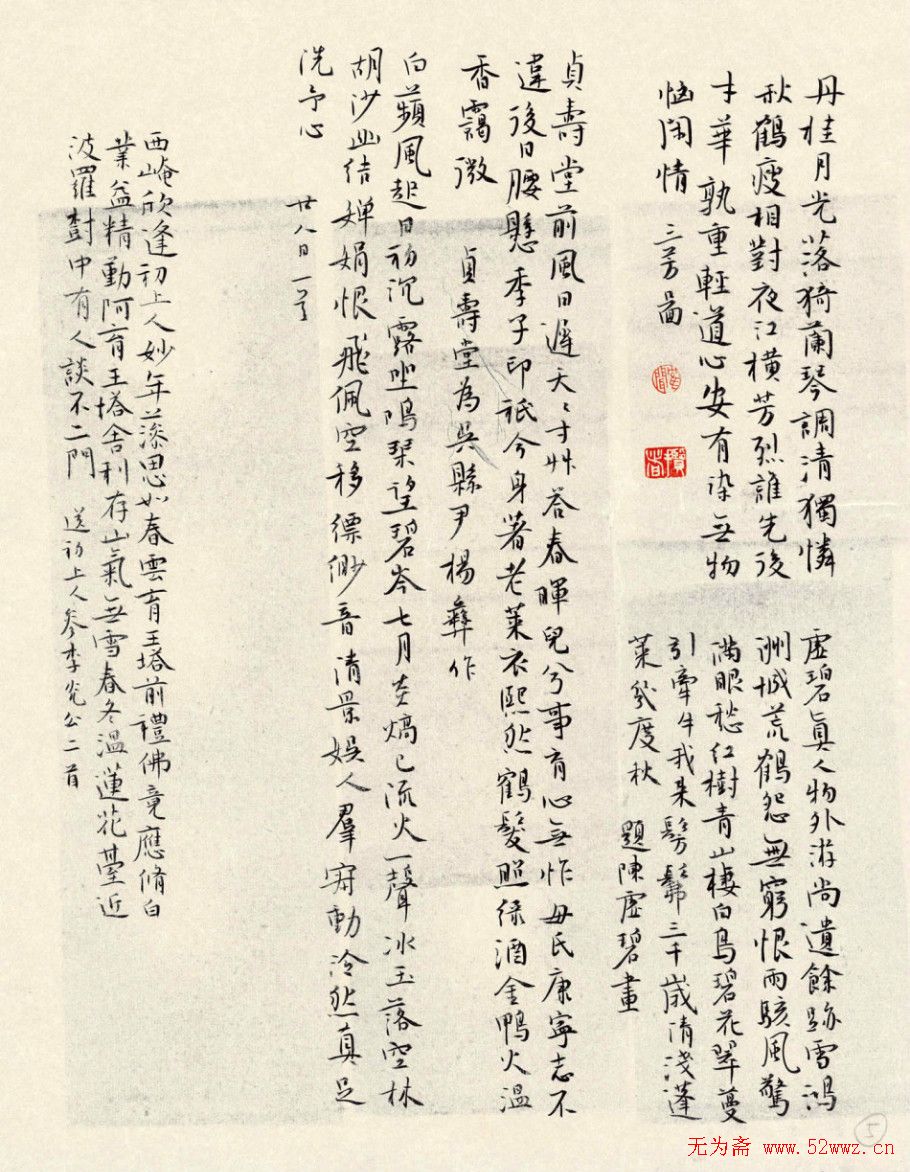 丹桂月光落猗蘭琴調清獨憐
秋鶴瘦相對夜江橫芳烈誰先後
才華孰重輕道心安有染無物
惱閑情 三芳圖
虛碧真人物外游尚遺餘跡雪鴻
洲城荒鶴怨無窮恨雨駭風驚
滿眼愁紅樹青山棲白鳥碧花翠蔓
引牽牛我來髣髴三千歲清淺蓬
萊幾度秋 題陳虛碧畫
貞壽堂前風日遲天〻寸艸答春暉兒兮事育心無怍母氏康寧志不
違後日腰懸季子印祇今身著老萊衣熙然鶴髮照綠酒金鴨火溫
香靄微 貞壽堂為吳縣尹楊彝作
白蘋風起日初沉露坐鳴琴望碧岑七月炎熇已流火一聲冰玉落空林
胡沙幽結嬋娟恨飛佩空移縹緲音清景娛人羣竅動泠然真足
洗予心
廿八日一首
西崦欣逢初上人妙年藻思如春雲育王塔前禮佛竟應脩白
業益精勤阿育王塔舍利存山氣無雪春冬溫蓮花臺近
波羅樹中有人談不二門 送初上人參李光公二首
5
无为斋 www.52wwz.cn